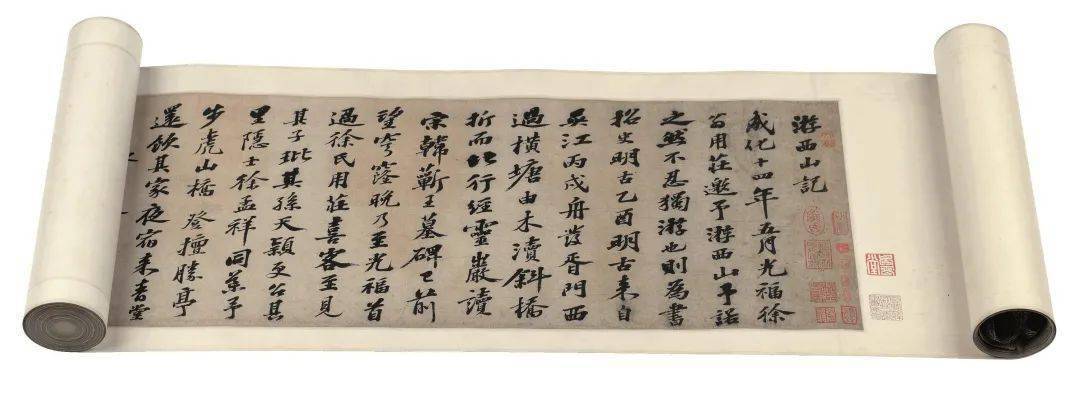 游西山記
成化十四年五月光福徐
翁用莊邀予游西山予諾
之然不忍獨游也則為書
招史明古乙酉明古来自
吴江丙戌舟發胥門西
過橫塘由木瀆斜橋
折而北行經靈巖讀
宋韓蘄王墓碑已前
望穹窿晚乃至光福首
過徐氏用莊喜客至見
其子玭其孫天穎其
里隱士徐孟祥同予
步虎山橋登擅勝亭
還飲其家夜宿来青堂